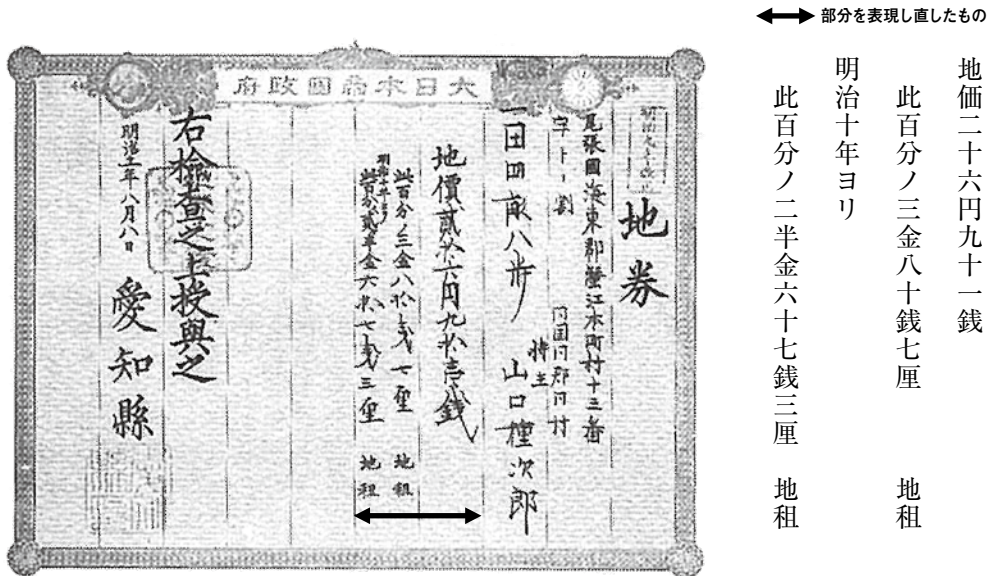 部分を表現し直したもの
地価二十六円九十一銭
此百分ノ三金八十銭七厘 地租
明治十年ヨリ
此百分ノ二半金六十七銭三厘 地租
大日本帝國政府
地券
尾張國海東郡蟹江本町村十三番
字トノ割
一田四畝八歩
同国同郡同村
持主 山口種次郎
地價貳拾六円九拾壱銭
此百分ノ三金八拾銭七厘 地租
明治十年ヨリ
此百分ノ貳半金六拾七銭三厘 地租
右検査之上授與之
明治十一年八月八日
愛知縣